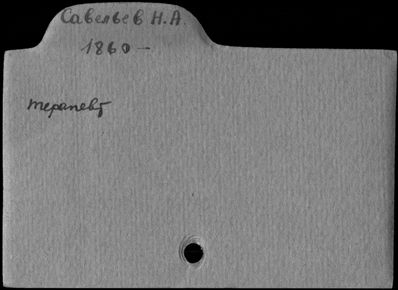 Савельев Н.А.
1860 —
терапевт